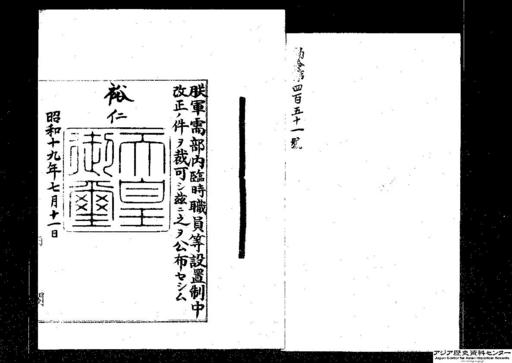 勅令第四百五十一號
朕軍需部內臨時職員等設置制中
改正ノ件ヲ裁可シ茲ニ之ヲ公布セシム
裕仁
天皇御璽
昭和十九年七月十一日
アジア歴史資料センター
Japan Center for Asian Historical Records